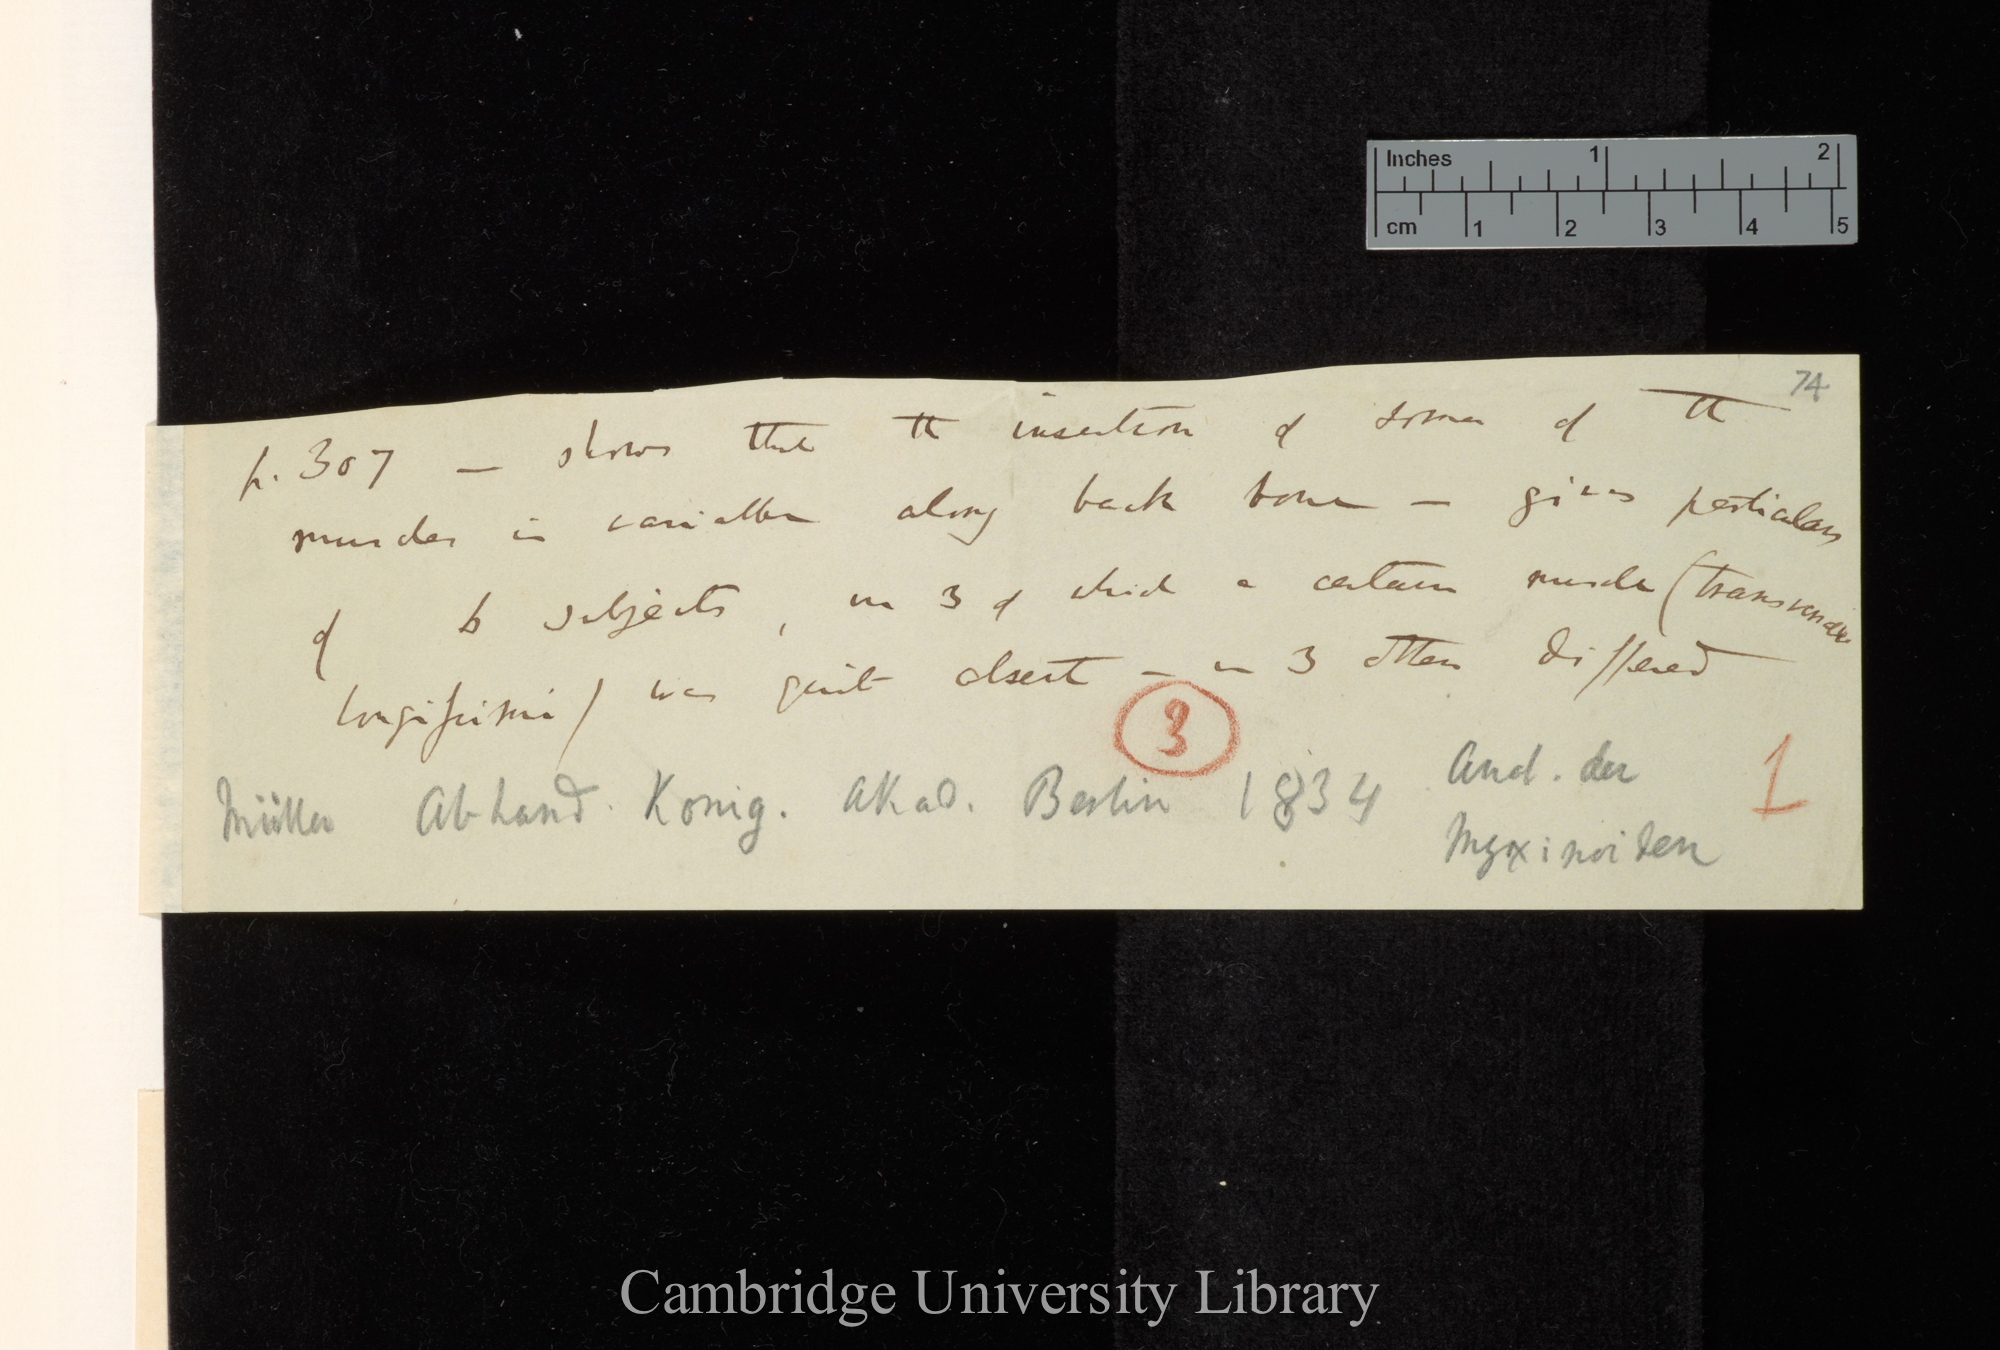 Inches 1 2
cm 1 2 3 4 5
74
p. 307 — shows that the insertion of some of the
muscles is variable along back bone — gives particulars
of 6 subjects, in 3 of which a certain muscle (transversalis
longissimi) was quite absent — in 3 others differed
3
Müller Abhand. Konig. Akad. Berlin 1834 Anat. der
Myxinoiden
1
Cambridge University Library